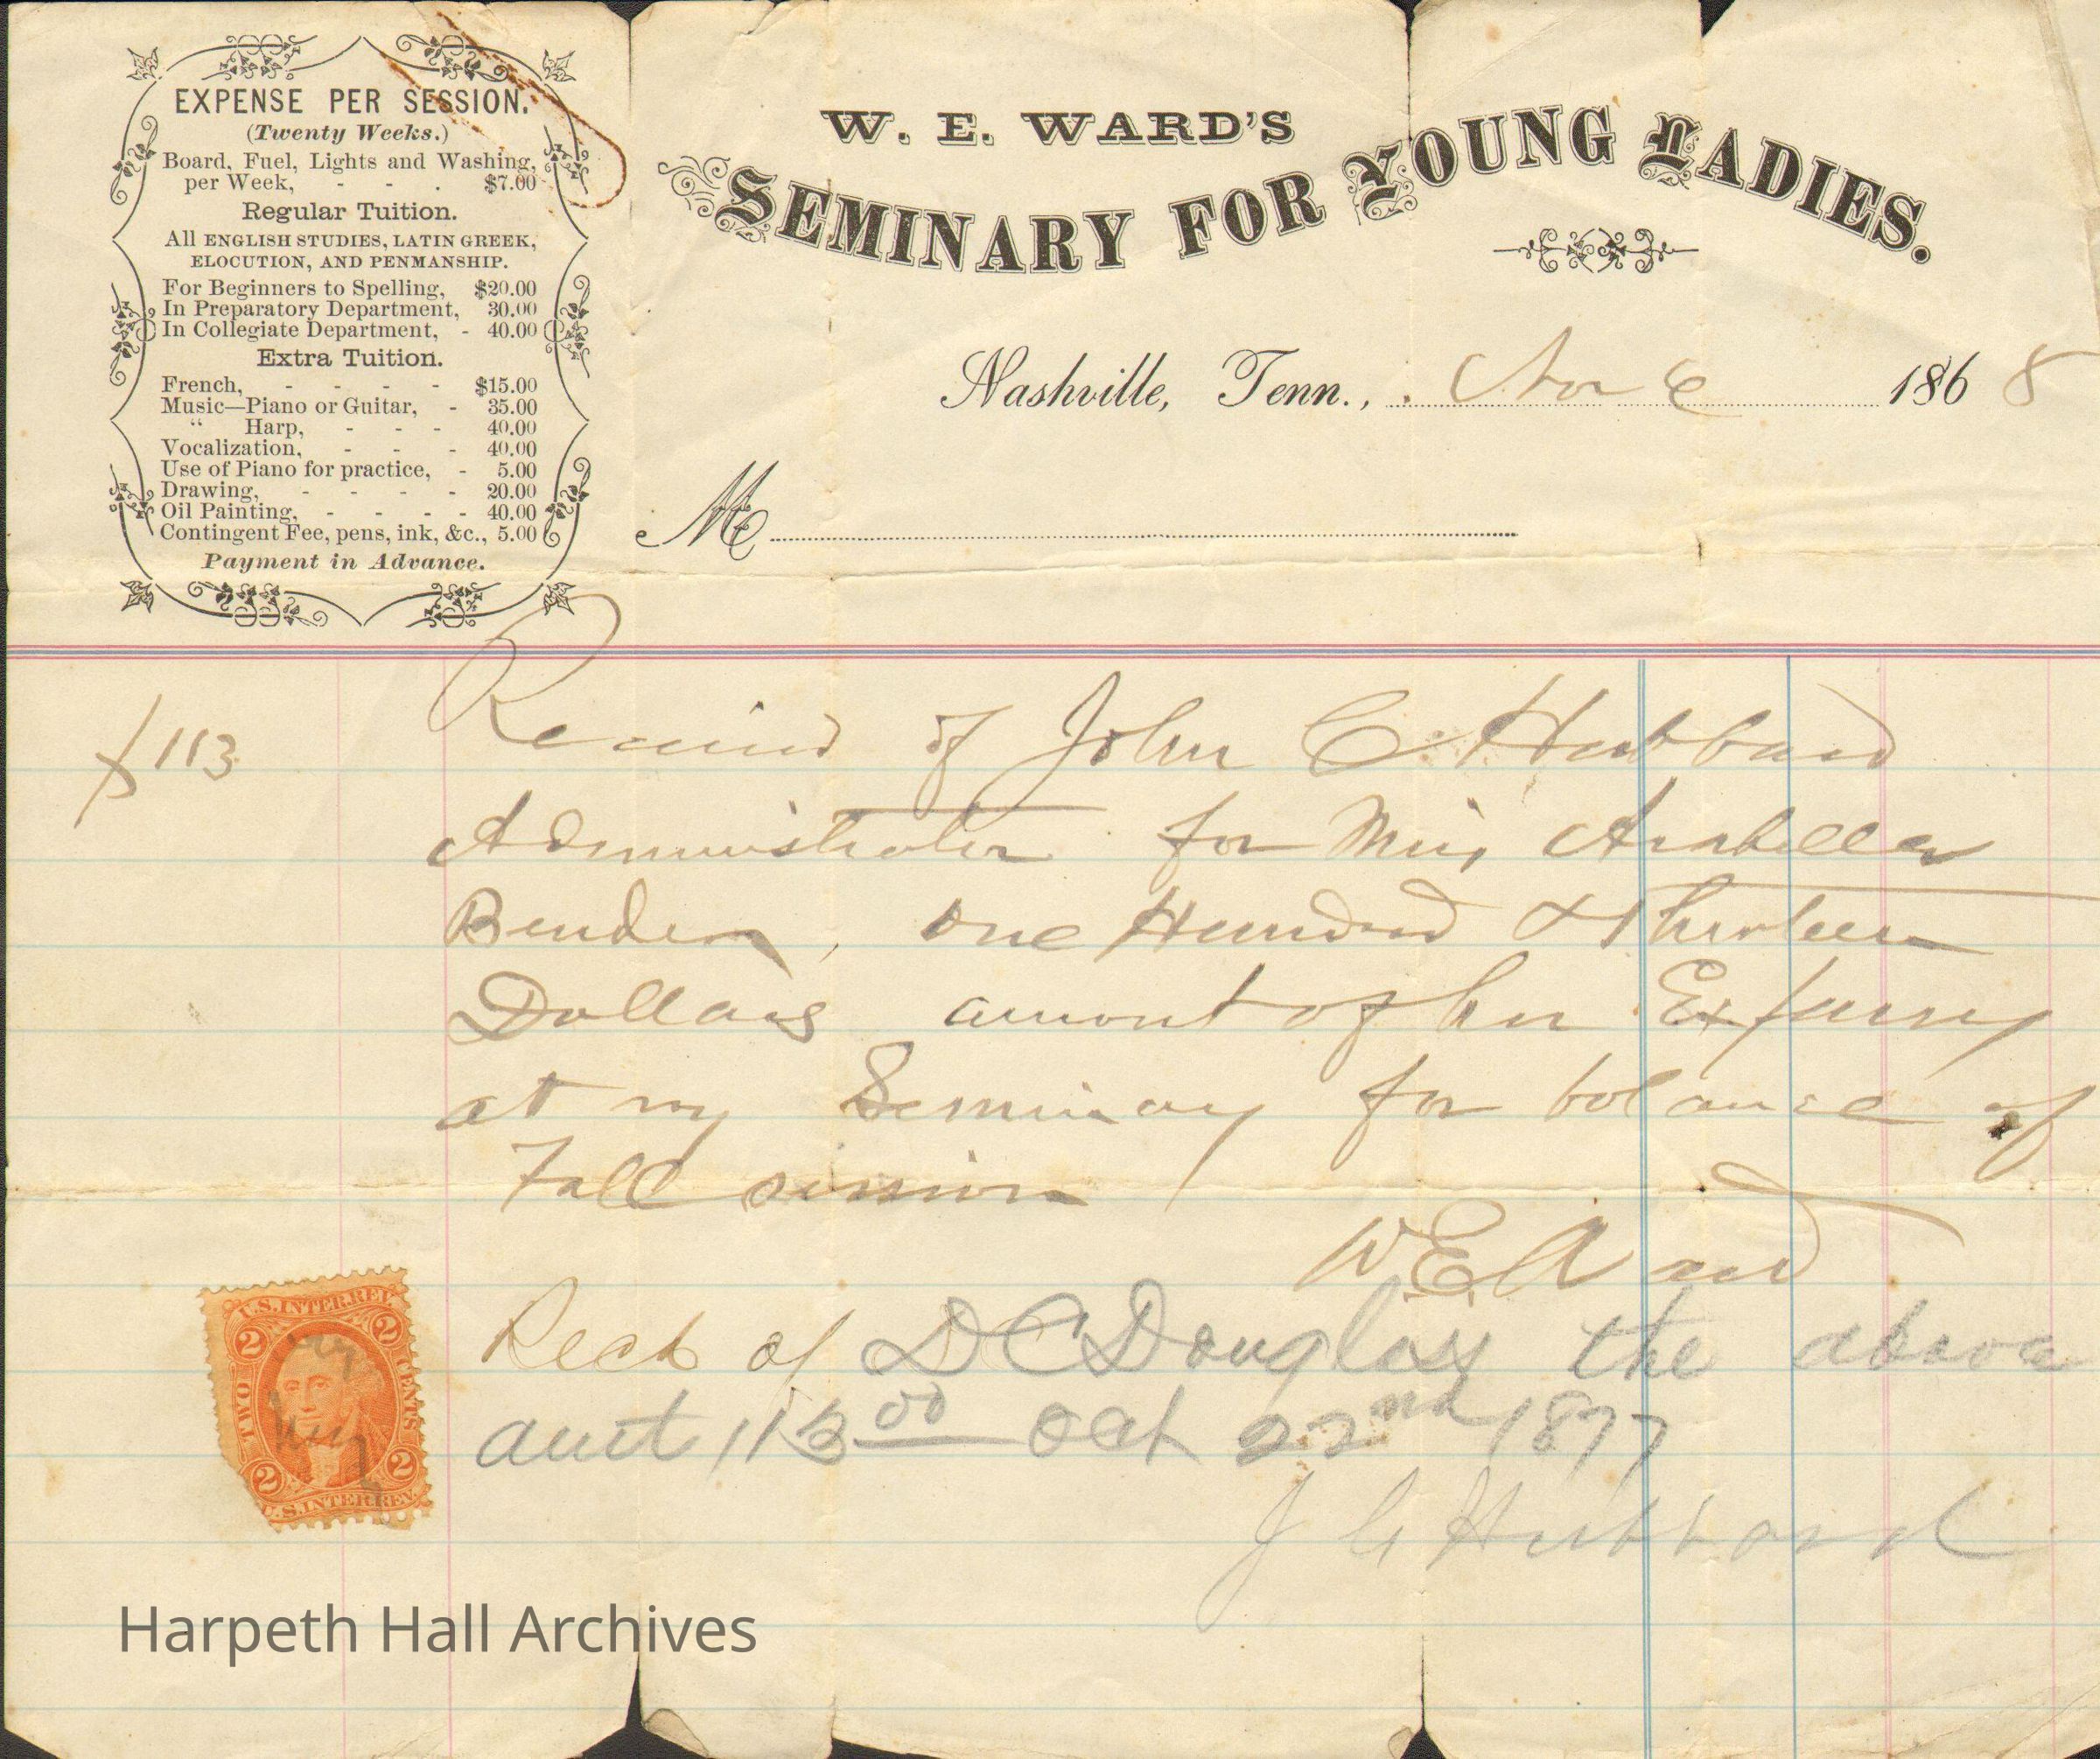 EXPENSE PER SESSION.
(Twenty Weeks.)
Board, Fuel, Lights and Washing,
per Week, - - . $7.00
Regular Tuition.
All ENGLISH STUDIES, LATIN GREEK,
ELOCUTION, AND PENMANSHIP.
For Beginners to Spelling, $20.00
In Preparatory Department, 30.00
In Collegiate Department, - 40.00
Extra Tuition.
French, - - - - $15.00
Music—Piano or Guitar, - 35.00
“ Harp, - - - 40.00
Vocalization, - - - 40.00
Use of Piano for practice, - 5.00
Drawing, - - - - 20.00
Oil Painting, - - - - 40.00
Contingent Fee, pens, ink, &c., 5.00
Payment in Advance.
W. E. WARD'S
SEMINARY FOR YOUNG LADIES.
Nashville, Tenn., Nov 6 1868
M
$113 Received of John C Hubbard
Administrator for Miss Arabella
one Hundred & thirteen
Dollars amount of her Expenses
at my Seminary for balance of
Fall session
W E Ward
Recd of D C Douglass the above
amt 113 00 Oct 22nd 1877
J C Hubbard
U.S. INTER. REV.
2 2
TWO CENTS
2 2
U.S. INTER. REV.
Harpeth Hall Archives